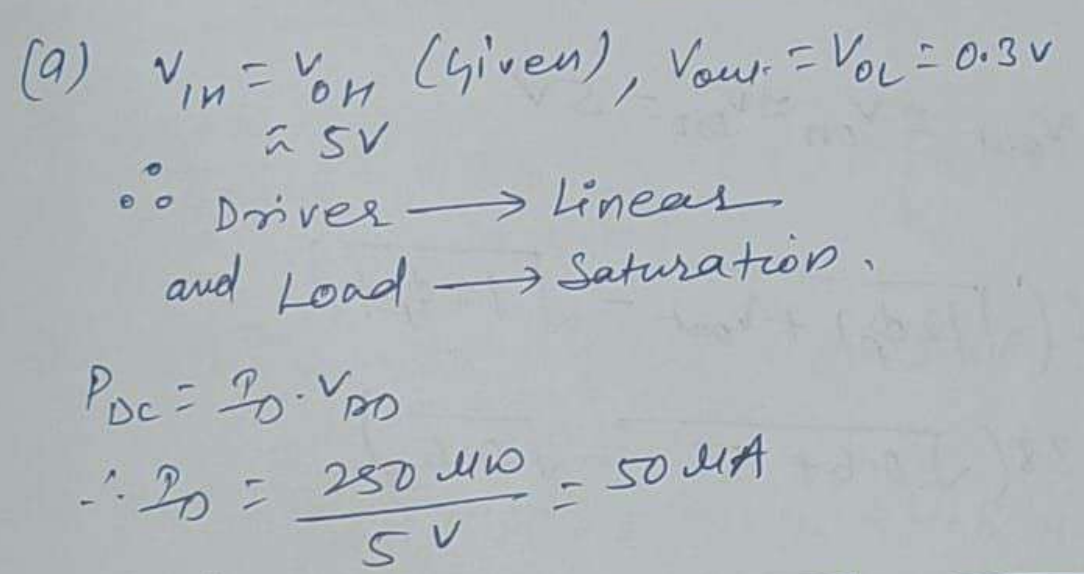 (a) V_IN = V_OH (Given), Vout = V_OL = 0.3 V
≈ 5V
∴ Driver → Linear
and Load → Saturation.
P_DC = I_D . V_DD
∴ I_D = 250 μW / 5 V = 50 μA